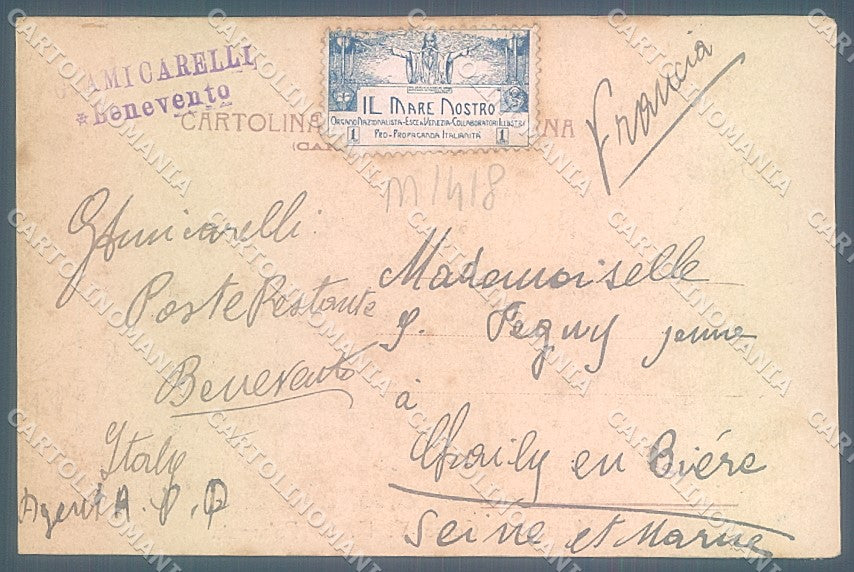 G. AMICARELLI
*Benevento
CARTOLINA
NA
(CAR
IL MARE NOSTRO
ORGANO NAZIONALISTA-ESCE A VENEZIA-COLLABORATORI ILLUSTRI
1 PRO-PROPAGANDA ITALIANITÀ 1
Francia
M 1418
GAmicarelli
Poste Restante
Benevento
Italy
Agent A.P.P
Mademoiselle
S. Peguy jeune
à
Chailly en Bière
Seine et Marne
CARTOLINOMANIA